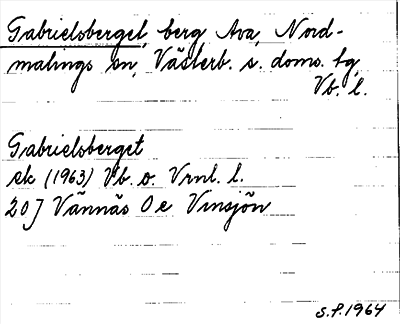 Gabrielsberget, berg Ava, Nord-
malings sn, Västerb. s. doms. tg,
Vb. l.
Gabrielsberget
ek (1963) Vb. o. Vrnl. l.
20J Vännäs Oe Vinsjön
S.P. 1964